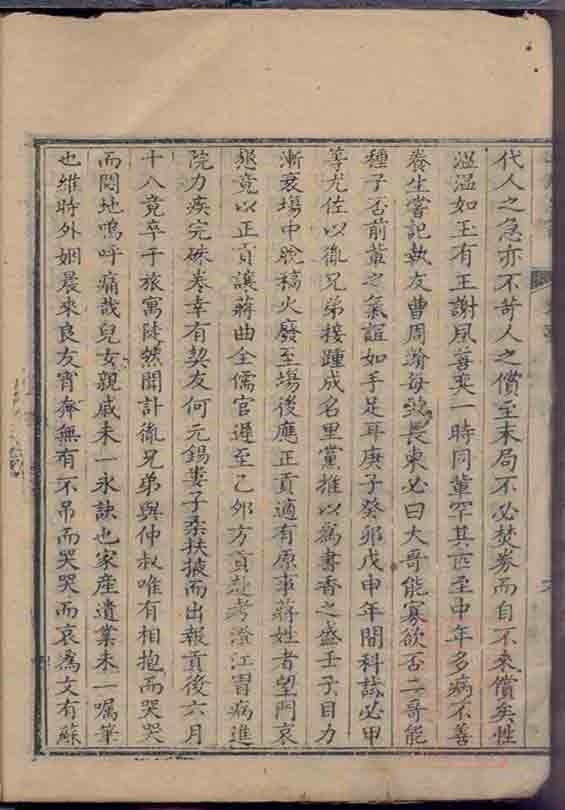 代人之急亦不苛人之償至末局不必焚券而自不來償矣性
溫溫如玉有王謝風善奕一時同輩罕其匹至中年多病不善
養生嘗記執友曹周瀚每致長柬必曰大哥能寡欲否二哥能
種子否前輩之氣誼如手足耳庚子癸卯戊申年間科試必甲
等尤佐以衡兄弟接踵成名里黨推以為書香之盛壬子目力
漸衰塲中脫稿火廢至塲後應正貢適有原事蔣姓者望門哀
懇竟以正貢讓蔣曲全儒官遲至乙卯方貢赴考澄江冒病進
院力疾完硃卷幸有契友何元錫婁子柔扶掖而出報貢後六月
十八竟卒于旅寓陡然聞訃衡兄弟與仲叔唯有相抱而哭哭
而悶地嗚呼痛哉兒女親戚未一永訣也家產遺業未一囑筆
也維時外姻晨來良友宵奔無有不吊而哭哭而哀為文有蘇